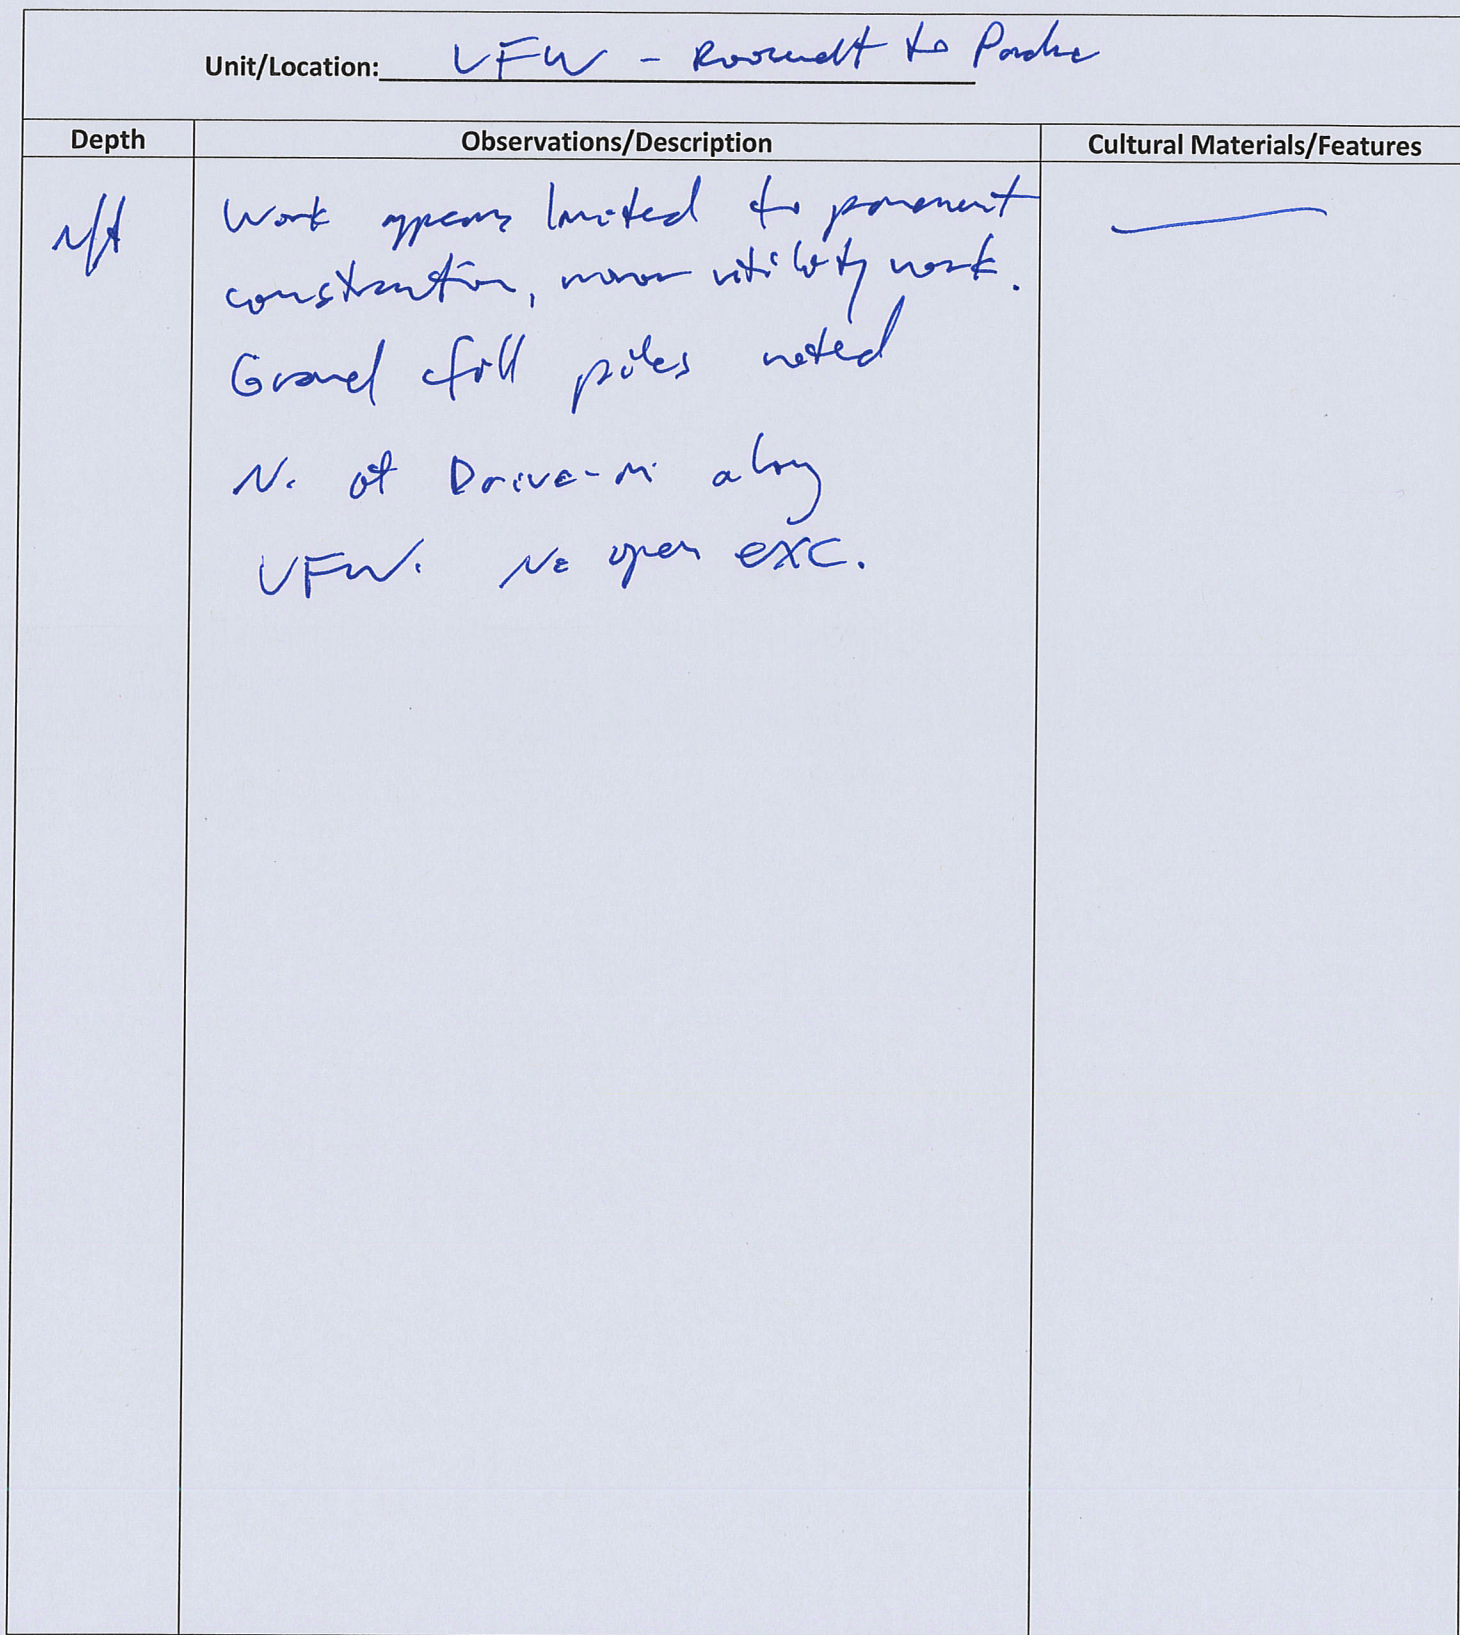 Unit/Location: VFW - Roosevelt to
Depth Observations/Description Cultural Materials/Features
N/A Work appears limited to pavement
construction, minor utility work.
Gravel fill piles noted
N. of Drive-in along
VFW. No open exc.